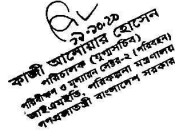 ১৯.১০.২০
কাজী আনোয়ার হোসেন
পরিচালক (যুগ্মসচিব)
পরিবীক্ষণ ও মূল্যায়ন সেক্টর-২ (পরিবহন)
আইএমইডি, পরিকল্পনা মন্ত্রণালয়
গণপ্রজাতন্ত্রী বাংলাদেশ সরকার